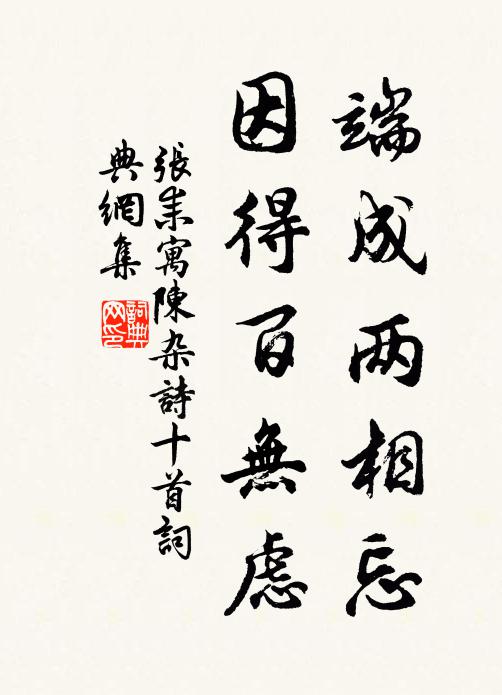 端成两相忘
因得百無慮
張耒寓陳杂詩十首詞
典網集
詞典
网印